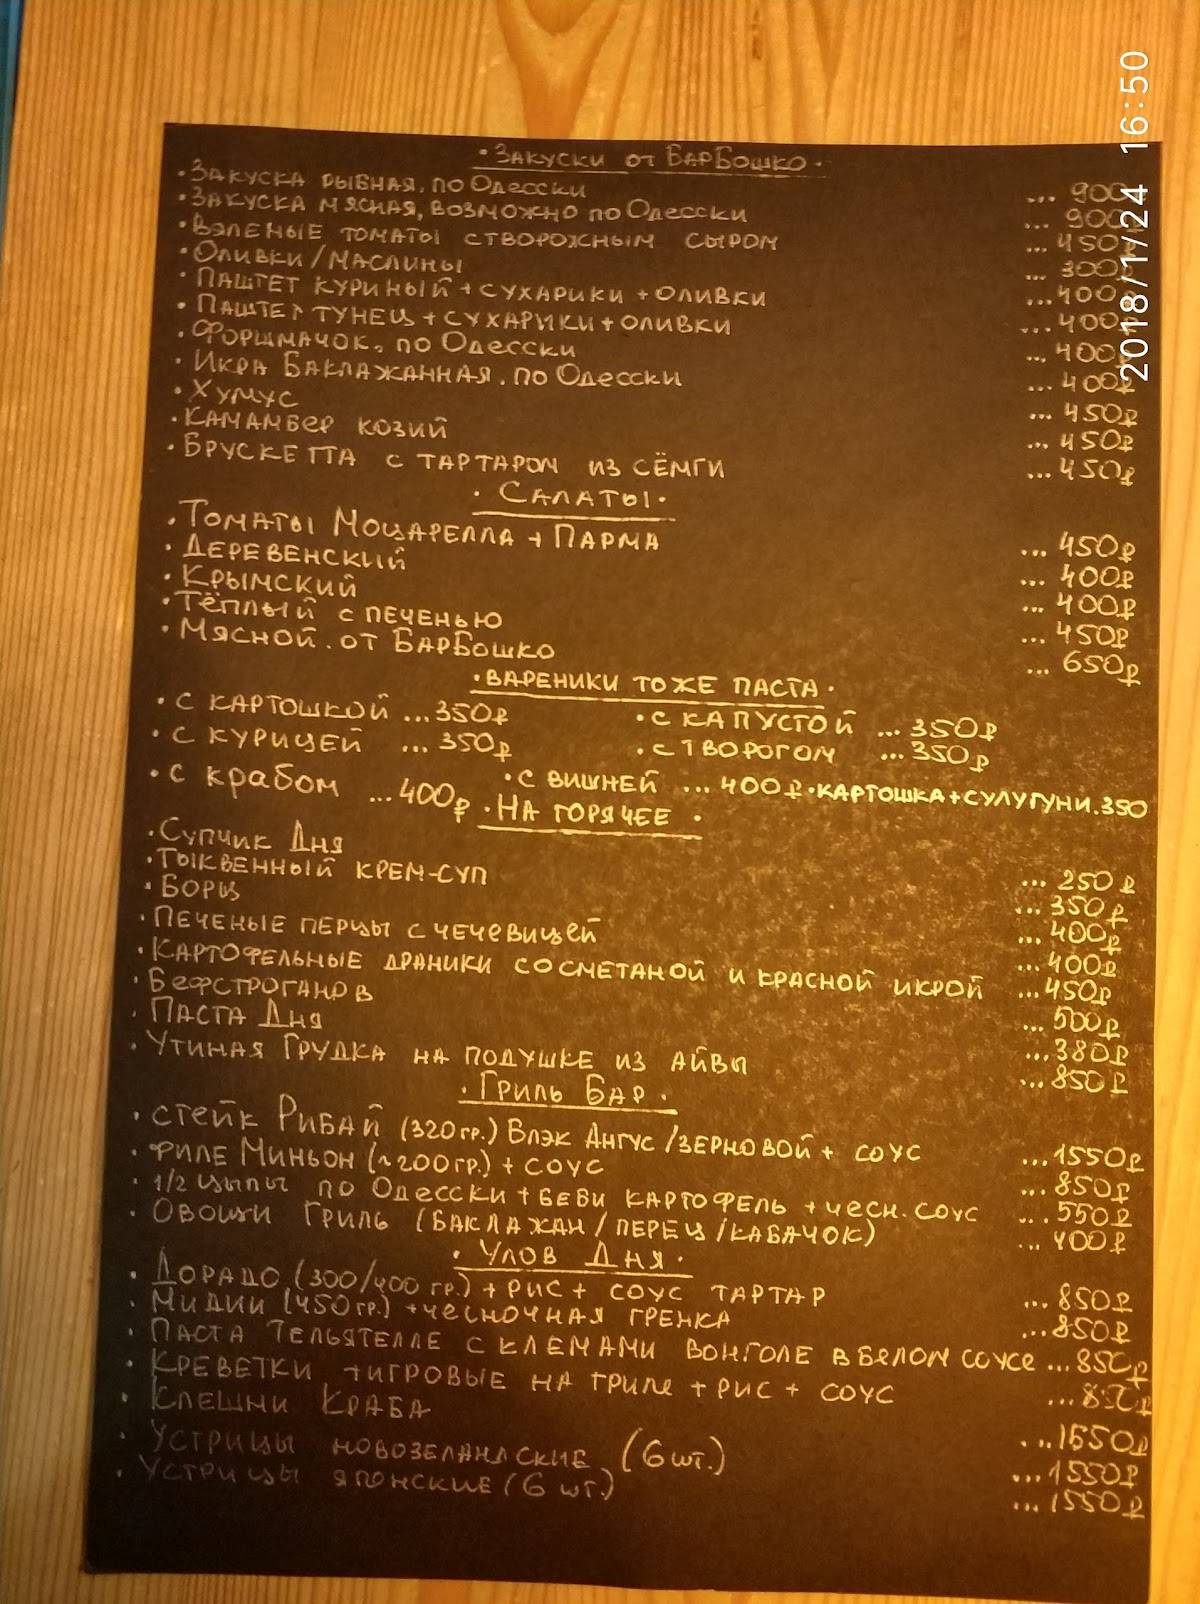 · Закуски от БарБошко ·
· Закуска рыбная, по Одесски ... 900
· Закуска мясная, возможно по Одесски ... 900
· Вяленые томаты с творожным сыром ... 450₽
· Оливки/маслины ... 300₽
· Паштет куриный + сухарики + оливки ... 400
· Паштет тунец + сухарики + оливки ... 400₽
· Форшмачок, по Одесски ... 400₽
· Икра Баклажанная, по Одесски ... 400₽
· Хумус ... 450₽
· Камамбер козий ... 450₽
· Брускетта с тартаром из сёмги ... 450₽
· Салаты ·
· Томаты Моцарелла + Парма ... 450₽
· Деревенский ... 400₽
· Крымский ... 400₽
· Тёплый с печенью ... 450₽
· Мясной от БарБошко ... 650₽
· Вареники тоже паста ·
· с картошкой ... 350₽ · с капустой ... 350₽
· с курицей ... 350₽ · с творогом ... 350₽
· с крабом ... 400₽ · с вишней ... 400₽ · картошка + сулугуни . 350
· На горячее ·
· Супчик Дня ... 250₽
· Тыквенный крем-суп ... 350₽
· Борщ ... 400₽
· Печеные перцы с чечевицей ... 400₽
· Картофельные драники со сметаной и красной икрой ... 450₽
· Бефстроганов ... 500₽
· Паста Дня ... 380₽
· Утиная Грудка на подушке из айвы ... 850₽
· Гриль Бар ·
· Стейк Рибай (320гр.) Блэк Ангус/зерновой + соус ... 1550₽
· Филе Миньон (~200гр.) + соус ... 850₽
· 1/2 цыпы по Одесски + беби картофель + чесн. соус ... 550₽
· Овощи Гриль (баклажан/перец/кабачок) ... 400₽
· Улов Дня ·
· Дорадо (300/400 гр.) + рис + соус тартар ... 850₽
· Мидии (450гр.) + чесночная гренка ... 850₽
· Паста Тельятелле с клемами вонголе в белом соусе ... 850₽
· Креветки тигровые на гриле + рис + соус ... 850₽
· Клешни Краба ... 1550₽
· Устрицы новозеландские (6 шт.) ... 1550₽
· Устрицы японские (6 шт.) ... 1550₽
2018/1/24 16:50